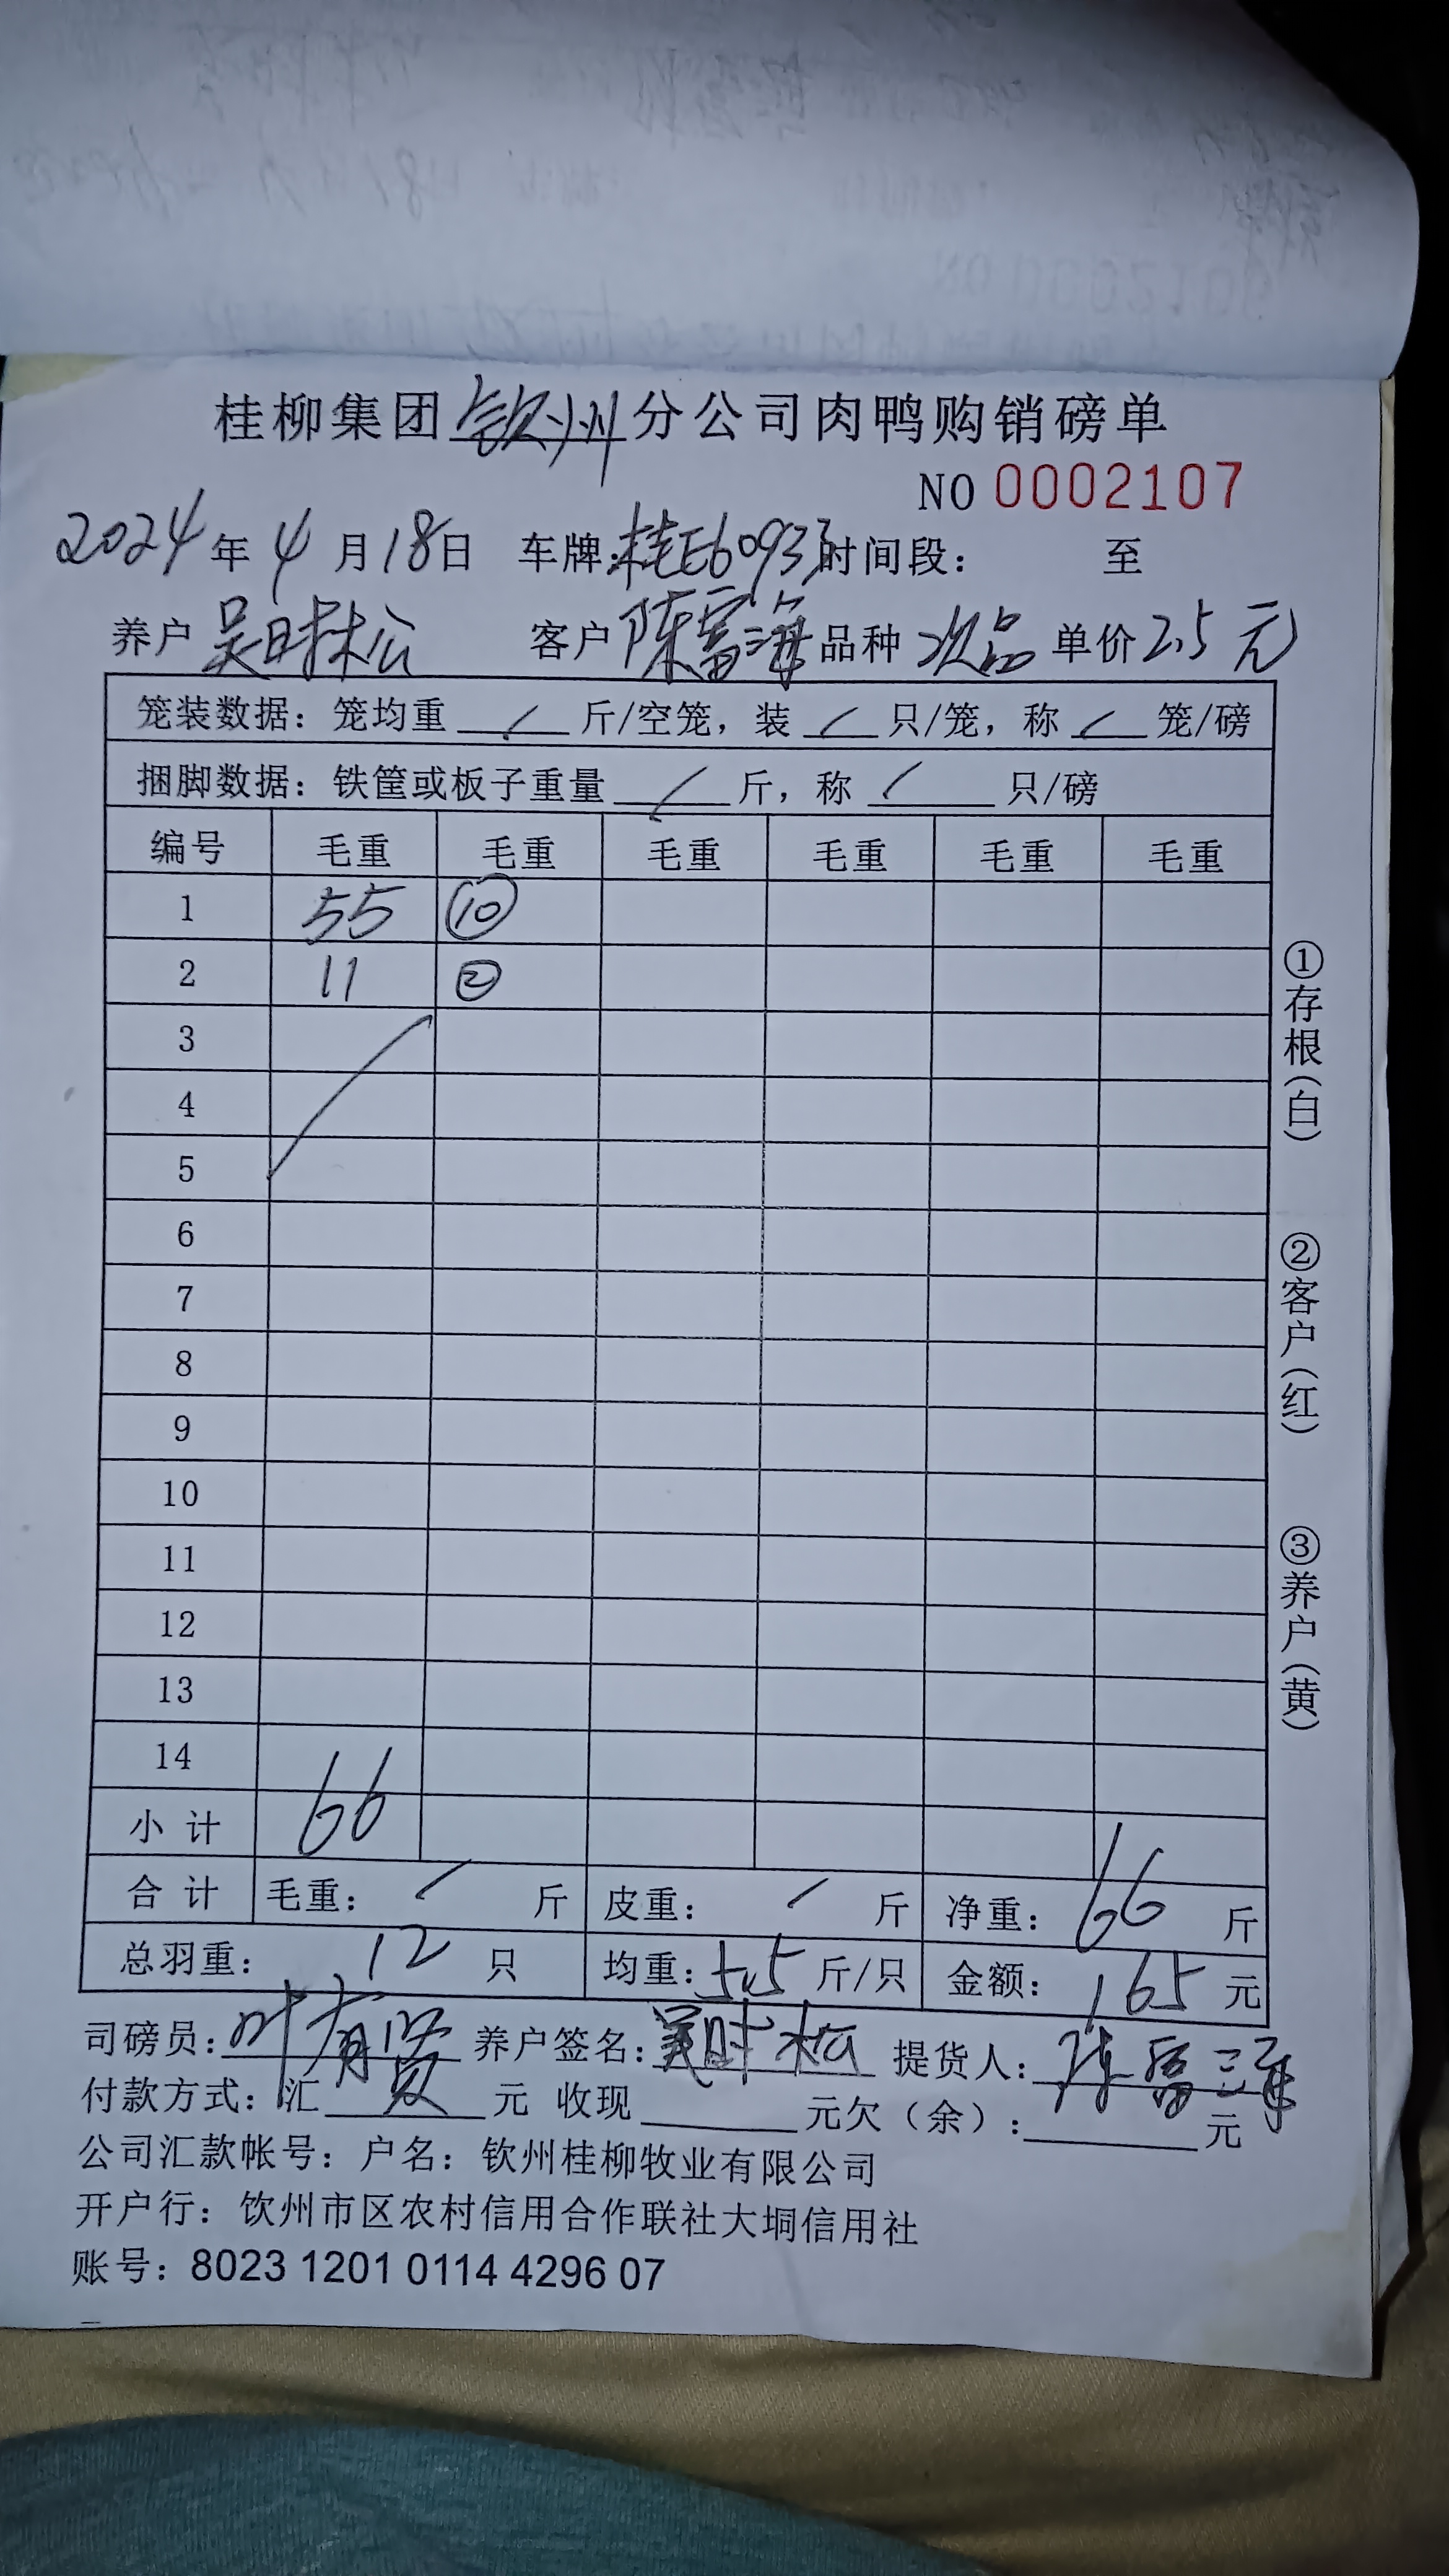 桂柳集团钦州分公司肉鸭购销磅单
NO 0002107
2024年4月18日 车牌:桂E60937时间段: 至
养户 吴时松 客户 陈富海 品种 次品 单价2.5元
笼装数据:笼均重 / 斤/空笼,装 / 只/笼,称 / 笼/磅
捆脚数据:铁筐或板子重量 / 斤,称 / 只/磅
编号 毛重 毛重 毛重 毛重 毛重 毛重
1 55 ⑩
2 11 ②
3
4
5
6
7
8
9
10
11
12
13
14
小计 66
合计 毛重: / 斤 皮重: / 斤 净重: 66 斤
总羽重: 12 只 均重: 5.5 斤/只 金额: 165 元
司磅员:叶有贤 养户签名:吴时松 提货人:陈富海
付款方式:汇 元 收现 元欠(余): 元
公司汇款帐号:户名:钦州桂柳牧业有限公司
开户行:钦州市区农村信用合作联社大垌信用社
账号:8023 1201 0114 4296 07
①存根(白)
②客户(红)
③养户(黄)